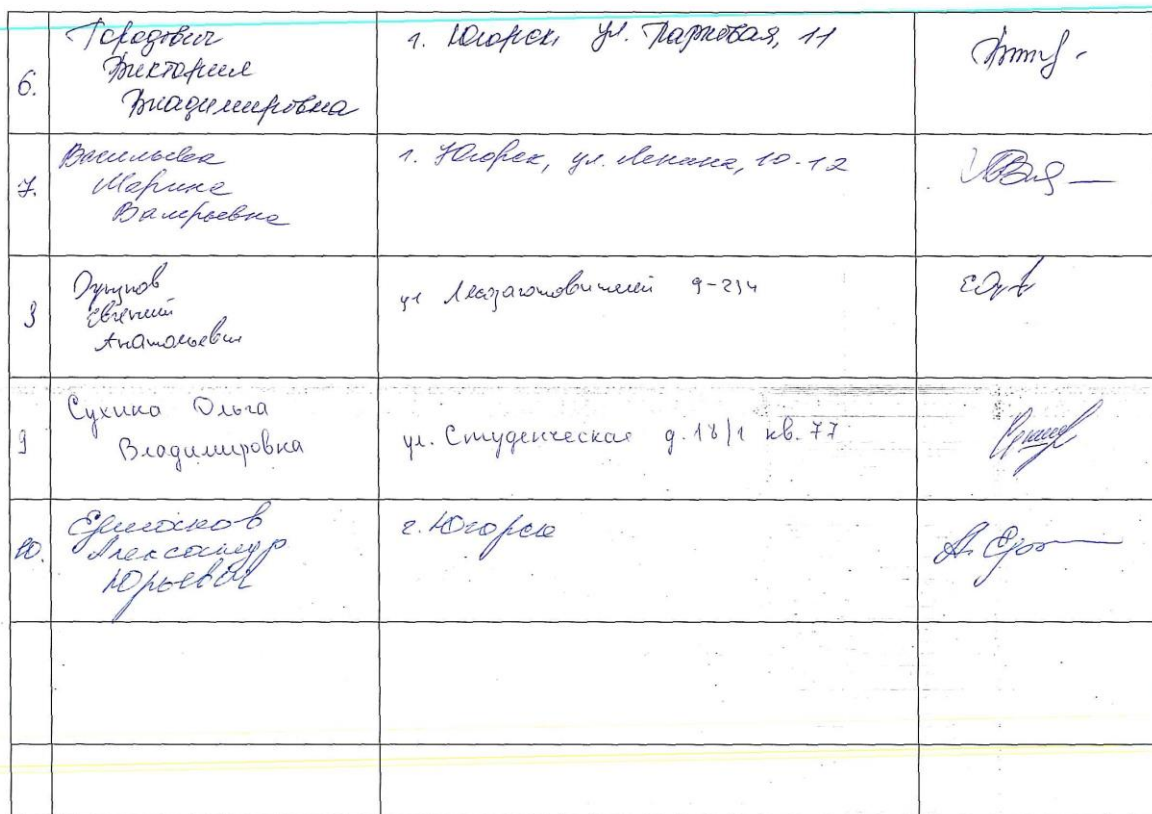 6.
Городович
Виктория
Владимировна
г. Югорск, ул. Парковая, 11
7.
Васильева
Марина
Валерьевна
г. Югорск, ул. Ленина, 10-12
8
Евгений
Анатольевич
ул Лесозаготовителей 9-234
9
Сухинко Ольга
Владимировна
ул. Студенческая д. 18/1 кв. 77
10.
Александр
Юрьевич
г. Югорск